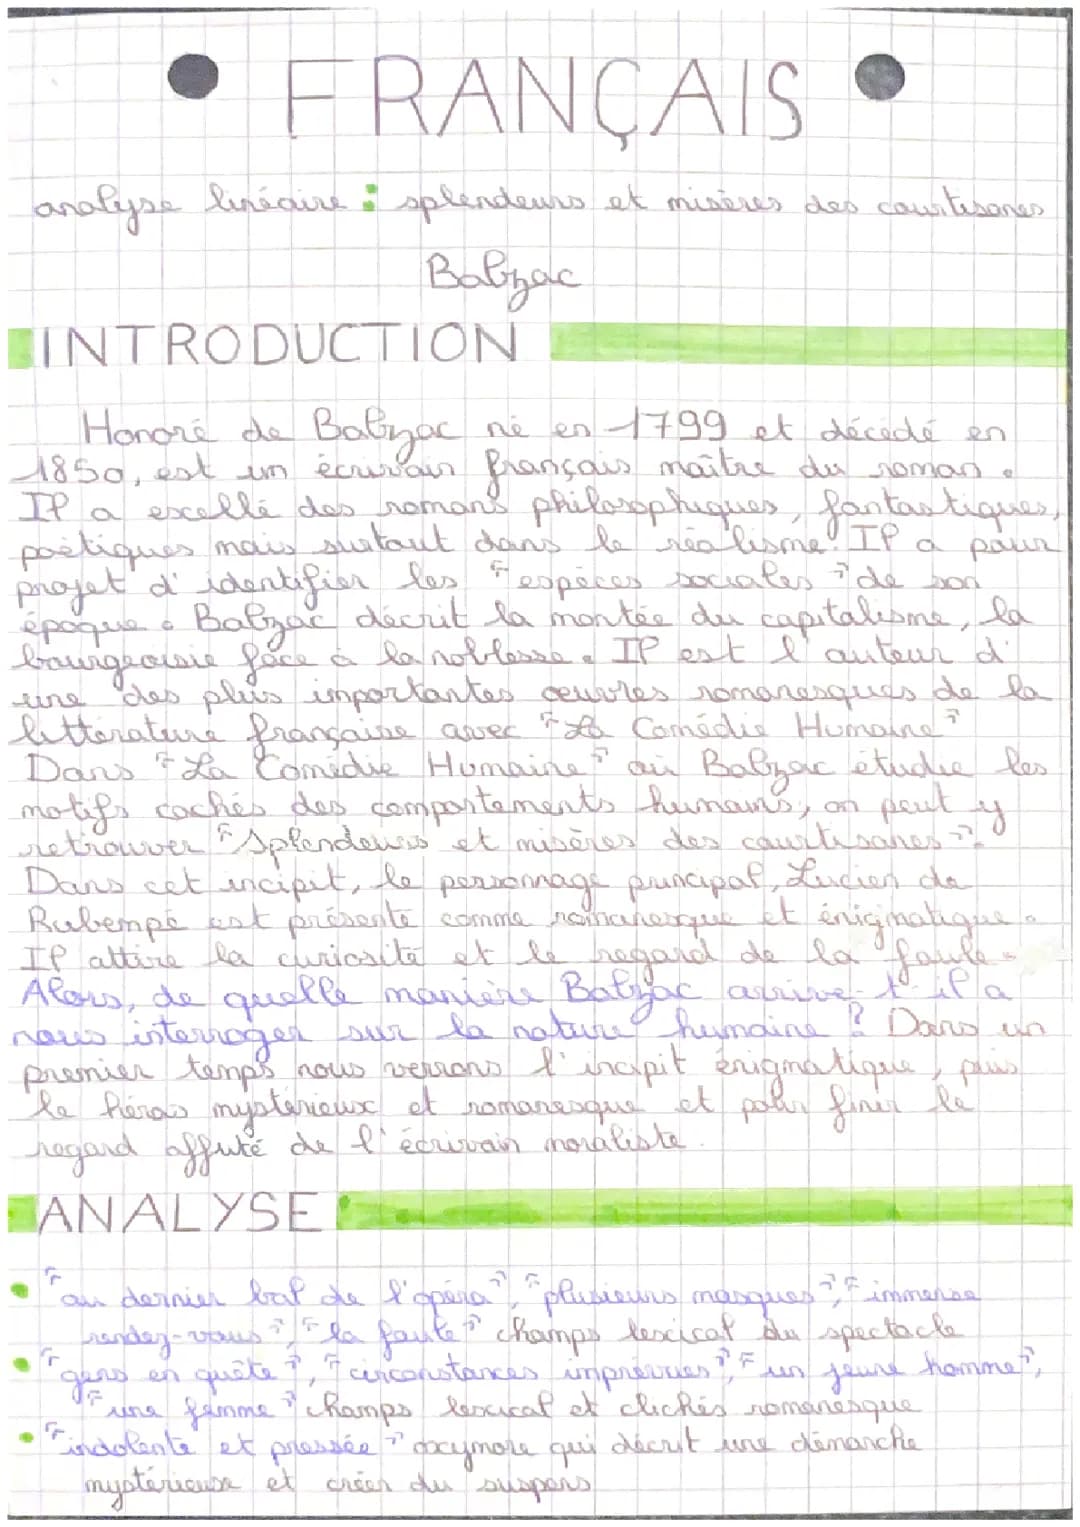 FRANÇAIS
analyse linéaire : splendeurs et misères des courtisanes
Balzac
INTRODUCTION
Honoré de Balzac né en 1799 et décédé en
1850, est un écrivain français maître du roman.
Il a excellé des romans philosophiques, fantastiques,
poétiques mais surtout dans le réalisme. Il a pour
projet d'identifier les "espèces sociales" de son
époque. Balzac décrit la montée du capitalisme, la
bourgeoisie face à la noblesse. Il est l'auteur d'
une des plus importantes œuvres romanesques de la
littérature française avec "La Comédie Humaine"
Dans "La Comédie Humaine" où Balzac étudie les
motifs cachés des comportements humains, on peut y
retrouver "Splendeurs et misères des courtisanes".
Dans cet incipit, le personnage principal, Lucien de
Rubempé est présenté comme romanesque et énigmatique.
Il attire la curiosité et le regard de la foule.
Alors, de quelle manière Balzac arrive-t-il a
nous interroger sur la nature humaine ? Dans un
premier temps nous verrons l'incipit énigmatique, puis
le héros mystérieux et romanesque et pour finir le
regard affuté de l'écrivain moraliste.
ANALYSE
• "au dernier bal de l'opéra", "plusieurs masques", "immense
rendez-vous", "la foule" champs lexical du spectacle
• "gens en quête", "circonstances imprévues", "un jeune homme",
"une femme" champs lexical et clichés romanesque
• "indolente et pressée" oxymore qui décrit une démarche
mystérieuse et créer du suspens